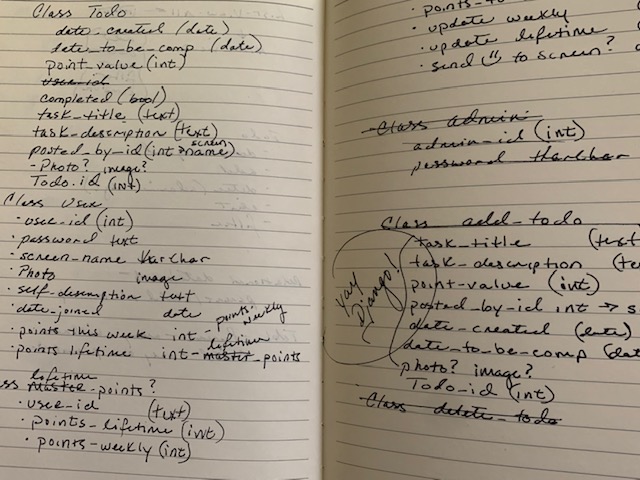 Class Todo
date-created (date)
date-to-be-comp (date)
point-value (int)
user-id
completed (bool)
task-title (text)
task-description (text)
posted-by-id (int → screen name)
- Photo? image?
Todo-id (int)
Class User
· user-id (int)
· password text
· screen-name VarChar
· Photo image
· self-description text
· date-joined date
· points this week int - points-weekly
· points lifetime int - master lifetime-points
ss master lifetime-points?
· user-id (text)
· points-lifetime (int)
· points-weekly (int)
· points-to
· update weekly
· update lifetime
· send to screen?
Class admin
admin-id (int)
password VarChar
Class add-todo
task-title (text
task-description (te
point-value (int)
posted-by-id int → s
date-created (date)
date-to-be-comp (dat
photo? image?
Todo-id (int)
Yay Django!
Class delete-todo